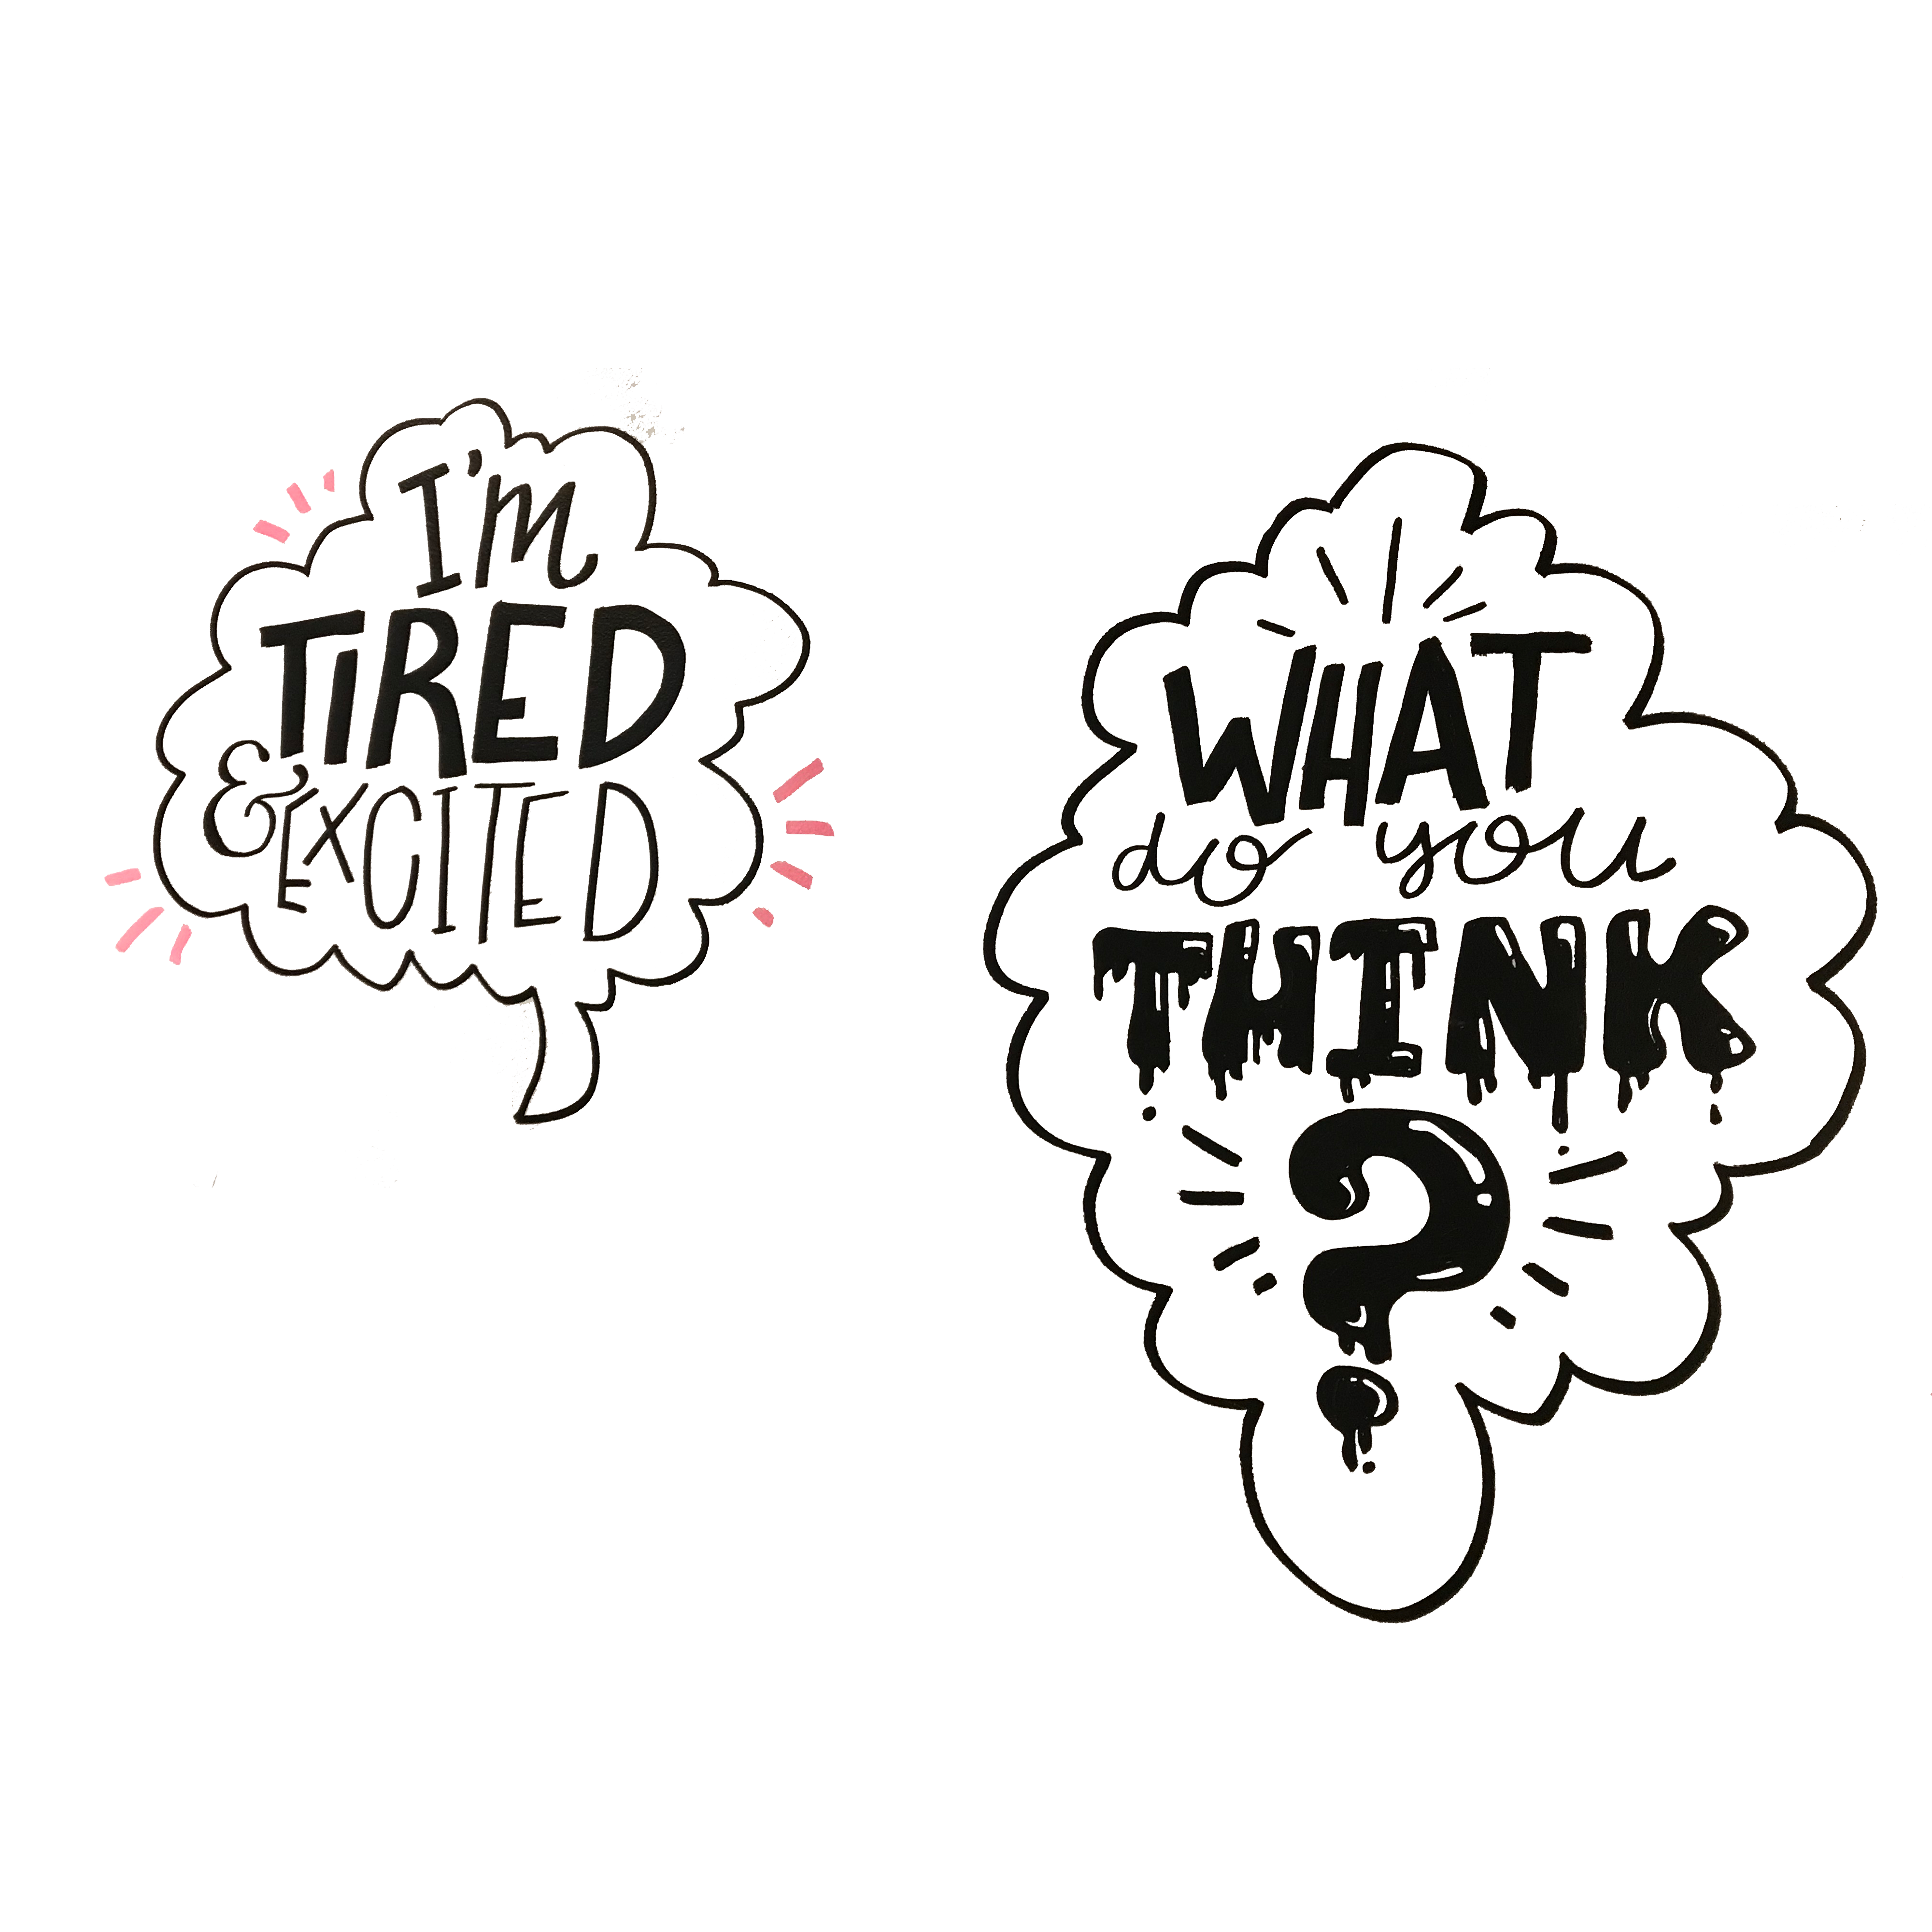 I'm
TIRED
& EXCITED
WHAT
do you
THINK
?